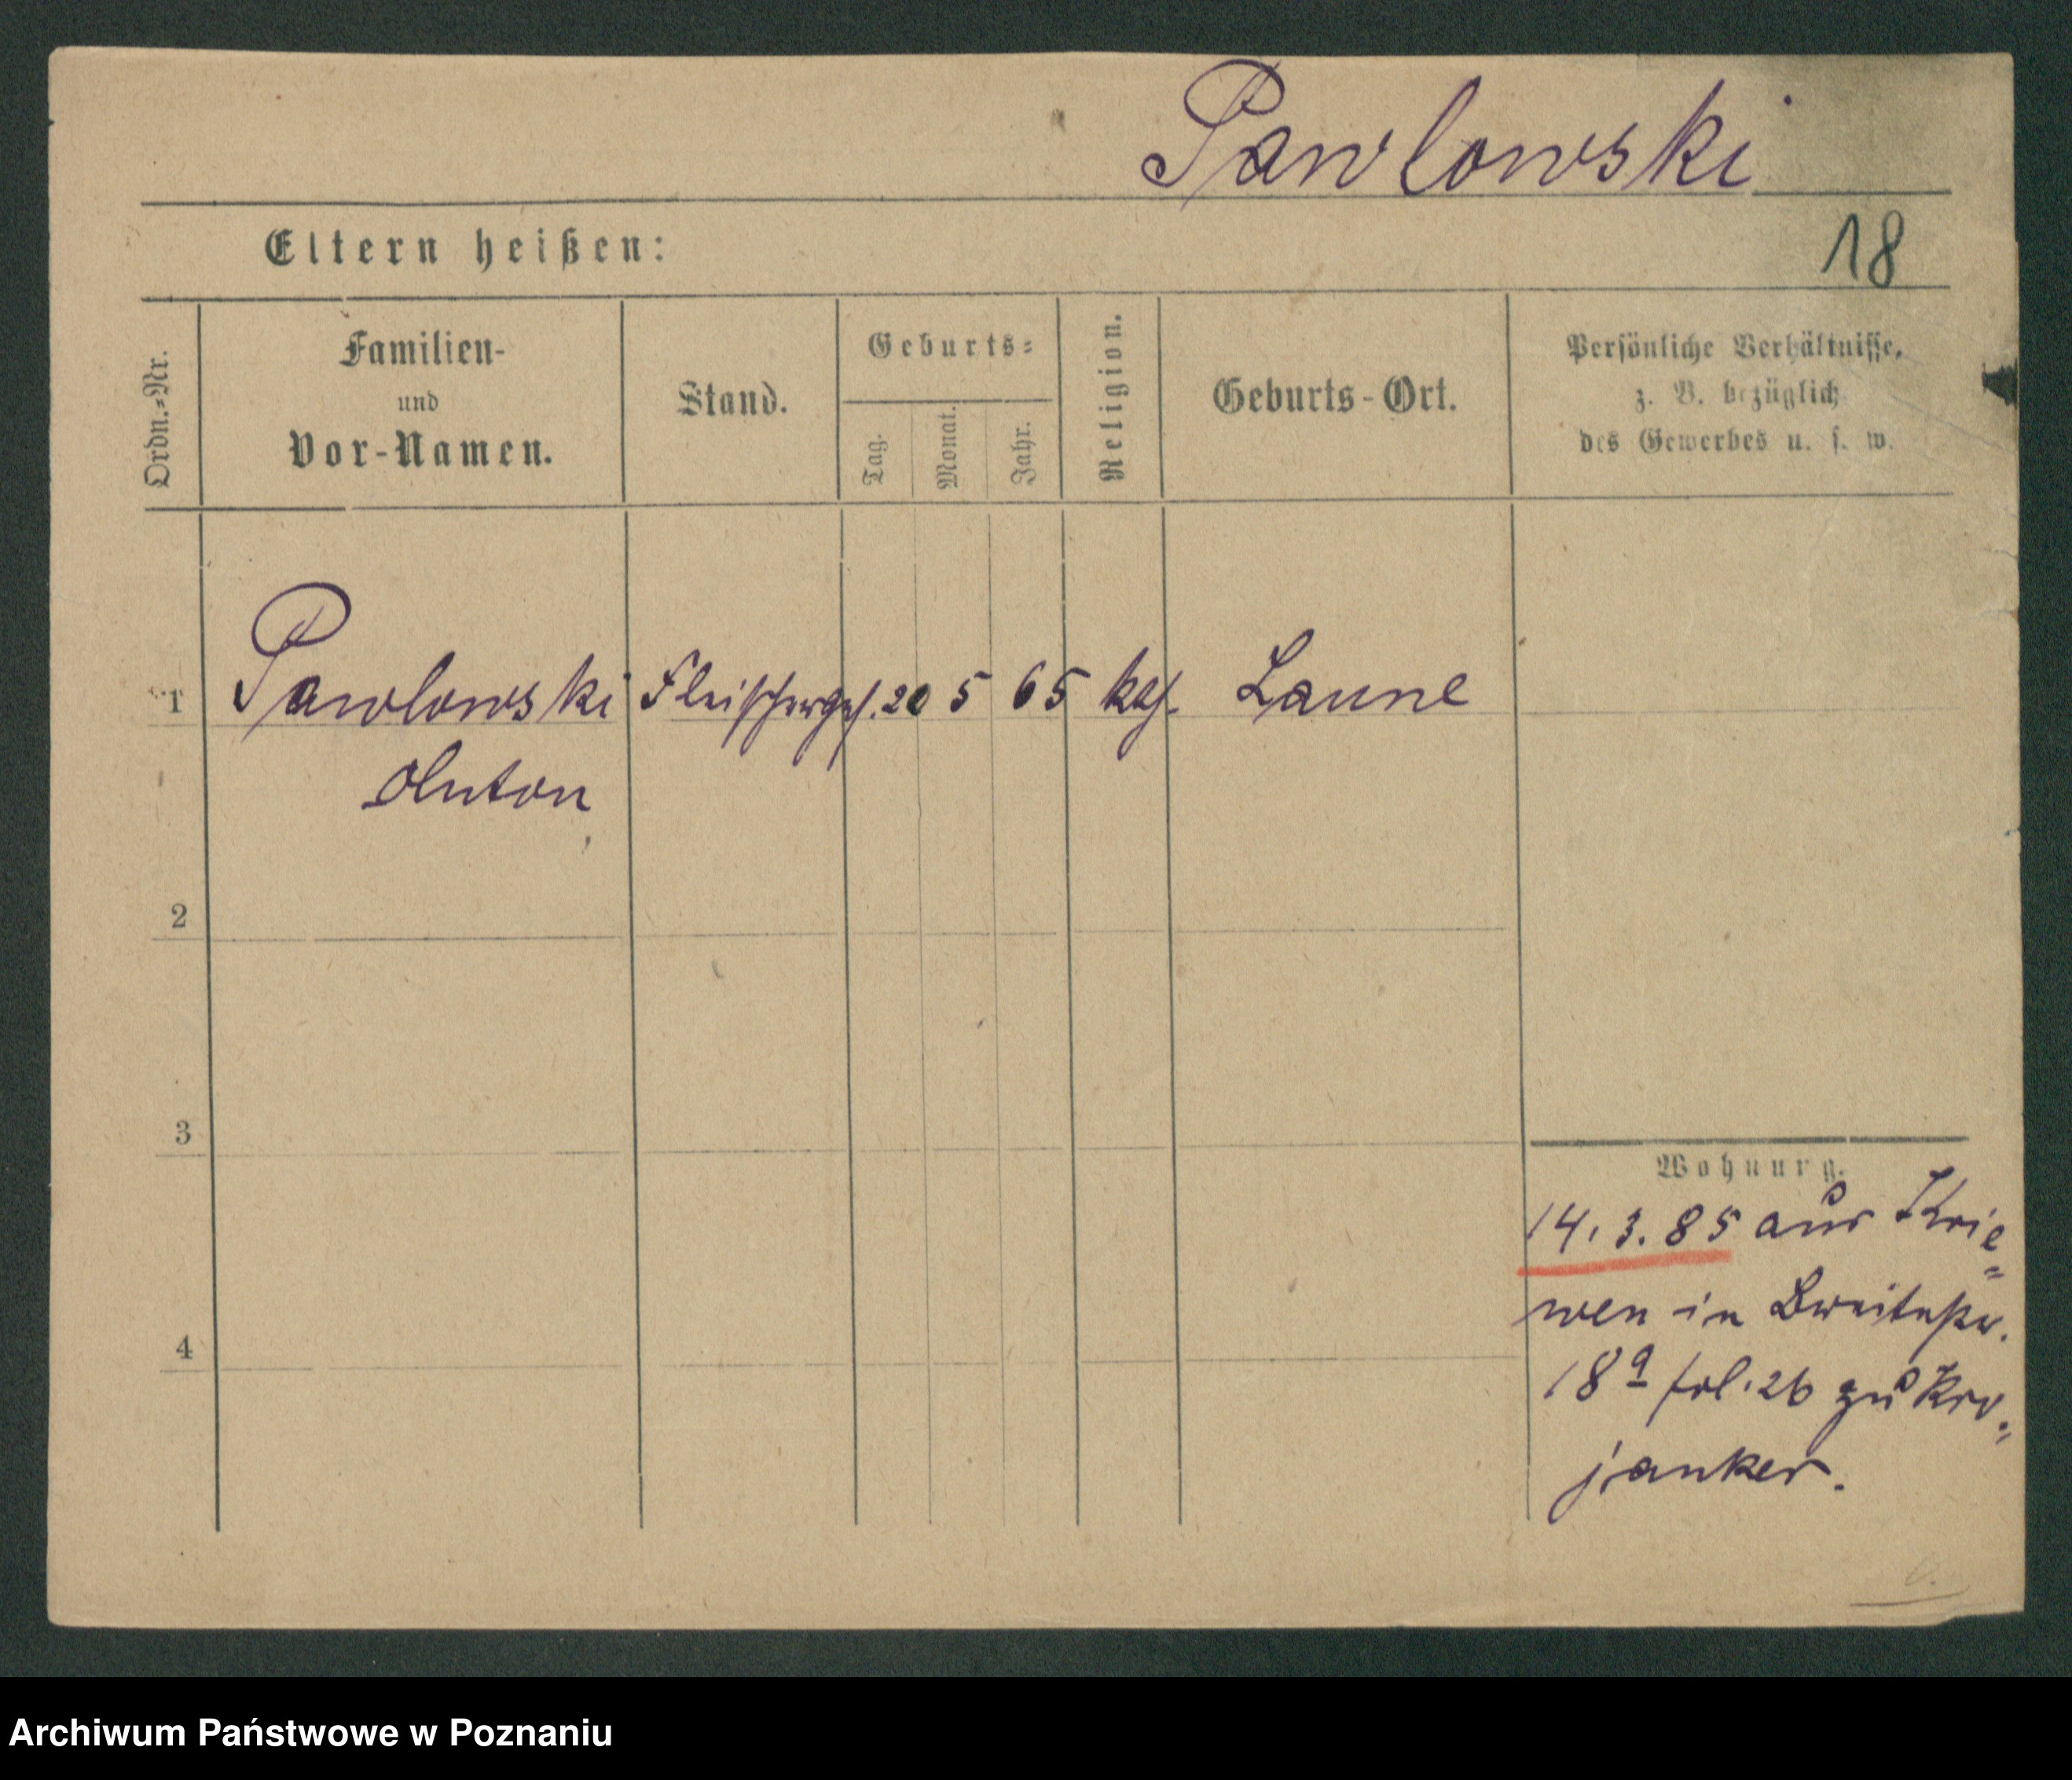 Pawlowski
Eltern heißen:
18
Ordn.-Nr.
Familien-
und
Vor-Namen.
Stand.
Geburts-
Tag.
Monat.
Jahr.
Religion.
Geburts-Ort.
Persönliche Verhältnisse,
z. B. bezüglich
des Gewerbes u. s. w.
1 Pawlowski Fleischerges. 20 5 65 kath. Laune
Anton
2
3
4
Wohnung.
14. 3. 85 aus Krie=
wen in Breitestr.
18a fol. 26 zu Kro=
janker.
Archiwum Państwowe w Poznaniu